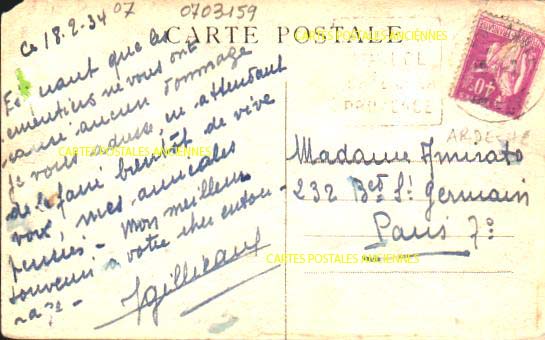 07 0703159
Ce 18.2.34
CARTE POSTALE
CARTES POSTALES ANCIENNES
Espérant que les
émeutiers ne vous ont
causé aucun dommage
je vous adresse, en attendant
CARTES POSTALES ANCIENNES
de le faire bientôt de vive
voix, mes amicales
pensées - Mon meilleur
souvenir à votre cher entou-
rage -
ARDECHE
Madame
232 Bd St Germain
Paris 7e
CARTES POSTALES ANCIENNES